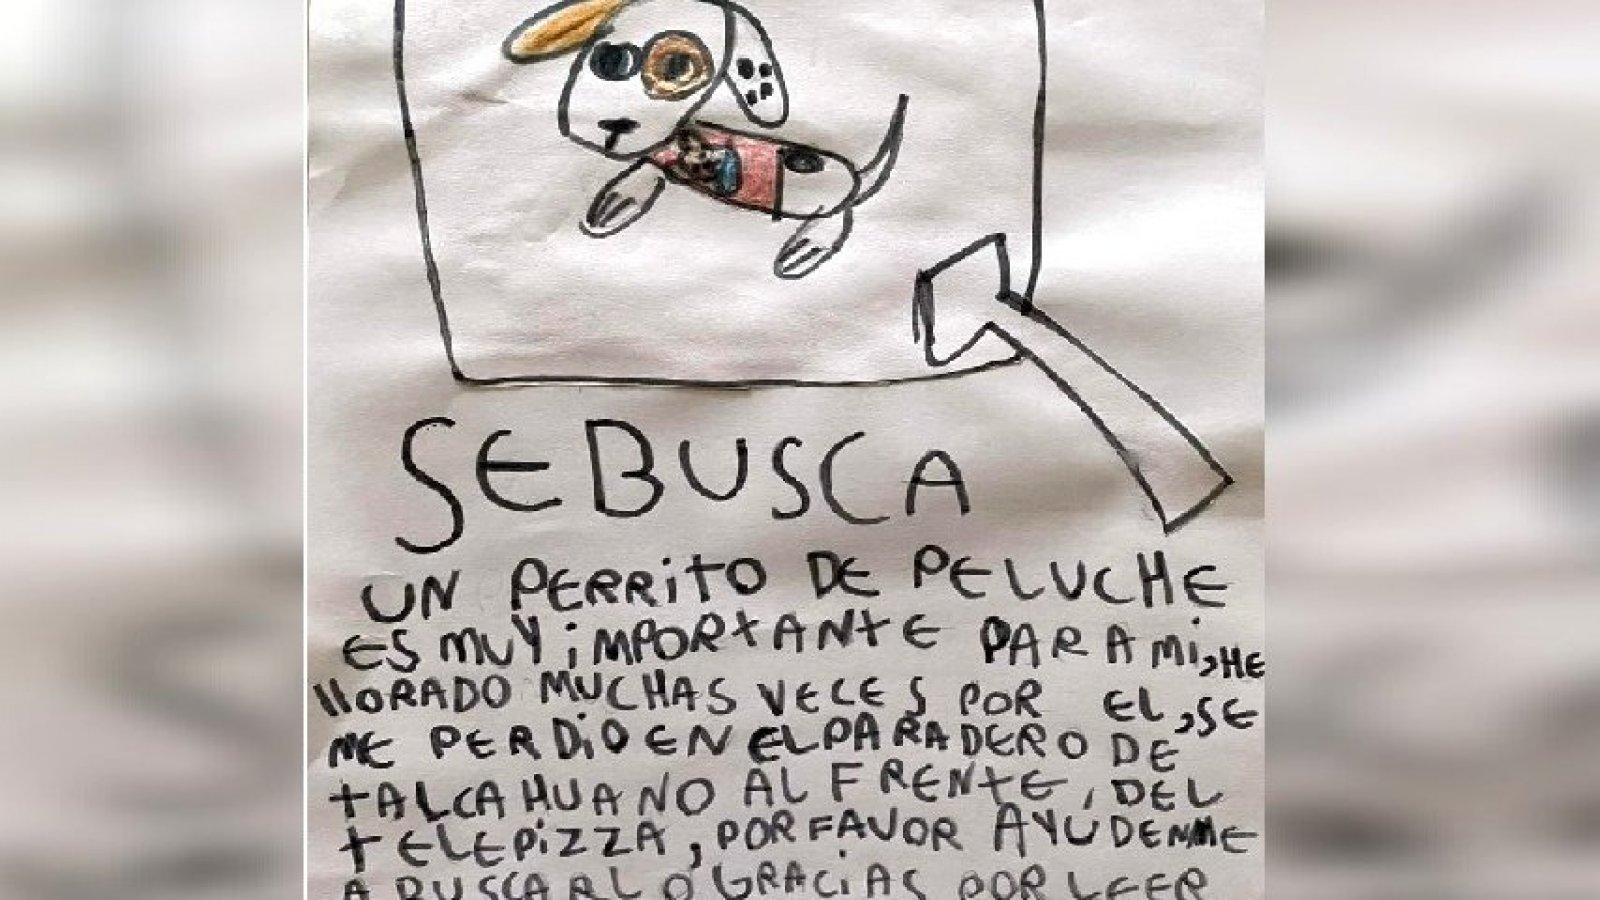 SE BUSCA
UN PERRiTO DE PELUCHE
ES MUY iMPORTANTE PARA Mi, HE
llORADO MUCHAS VECES POR EL, SE
ME PERDiO EN EL PARADERO DE
TALCAHUANO AL FRENTE, DEL
TELEPiZZA, POR FAVOR AYUDENME
A BUSCARLO GRACiAS POR LEER